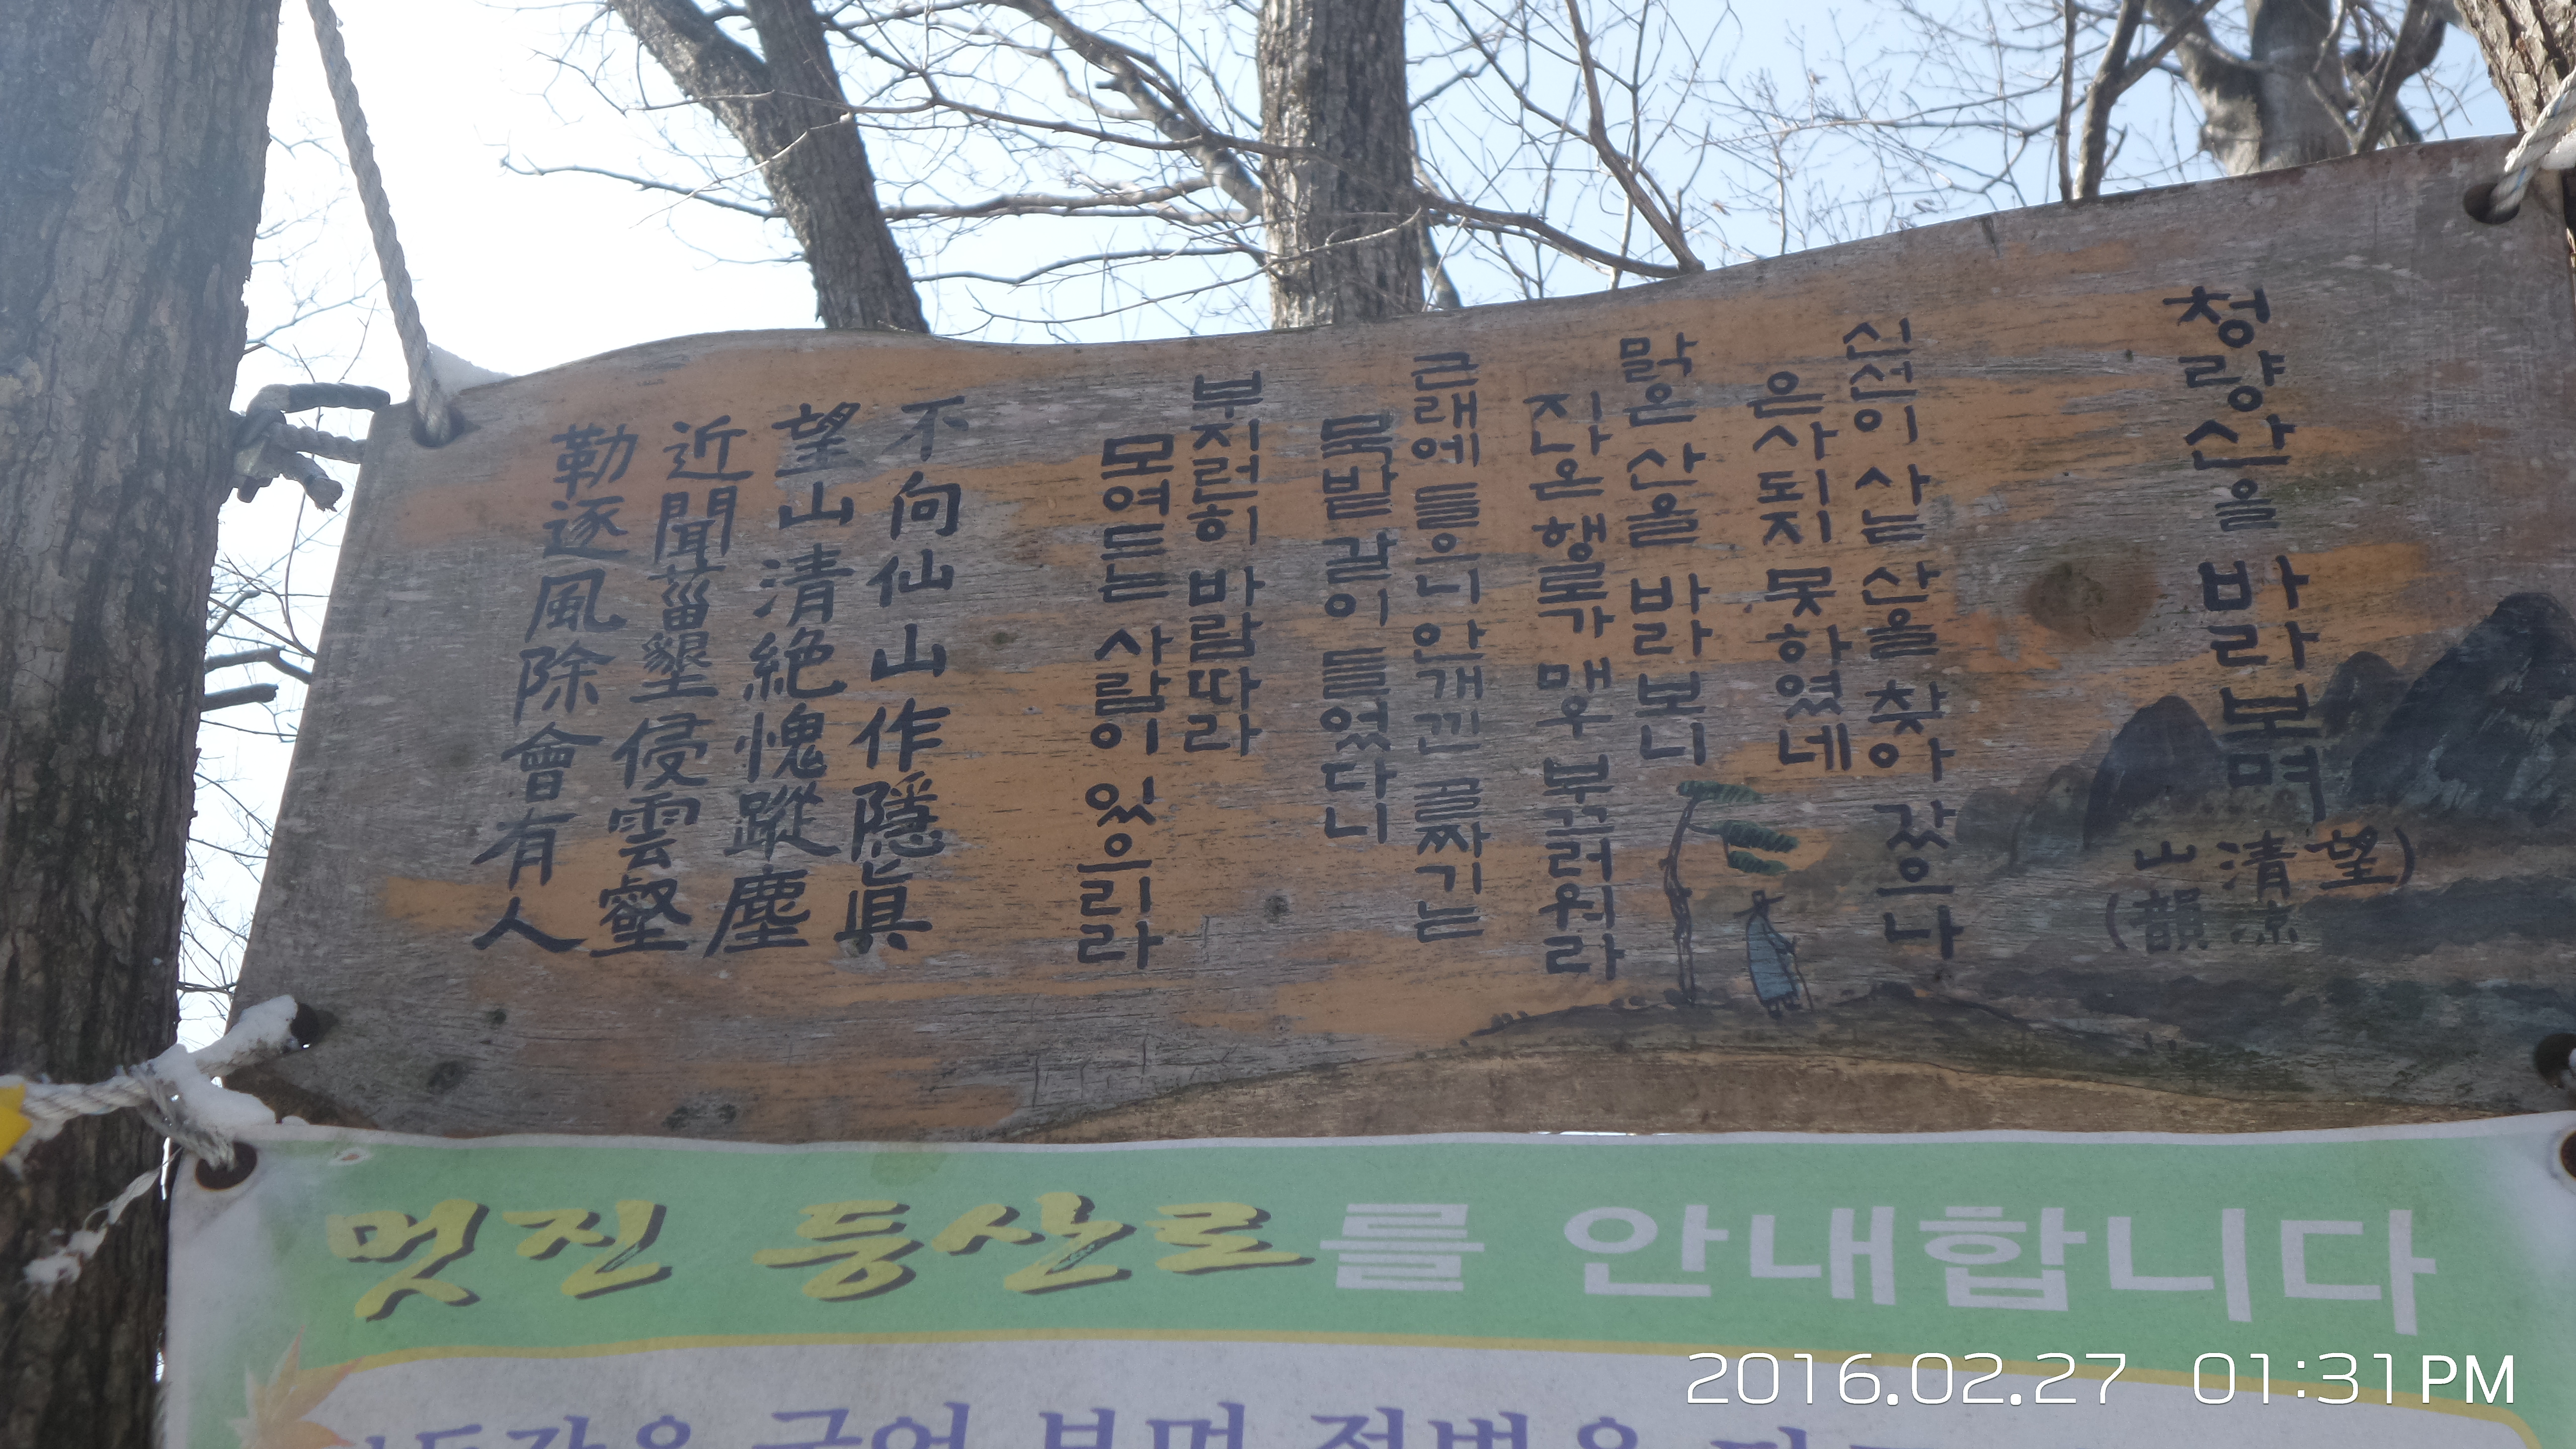 청량산을 바라보며
(望清凉山韻)
신선이 사는 산을 찾아 갔으나
은사되지 못하였네
맑은 산을 바라보니
지나온 행로가 매우 부끄러워라
근래에 들으니 안개낀 골짜기는
묵밭 같이 들었다니
부지런히 바람따라
모여드는 사람이 있으리라
不向仙山作隱眞
望山清絶愧蹤塵
近聞菑墾侵雲壑
勒逐風除會有人
멋진 등산로를 안내합니다
2016.02.27 01:31PM